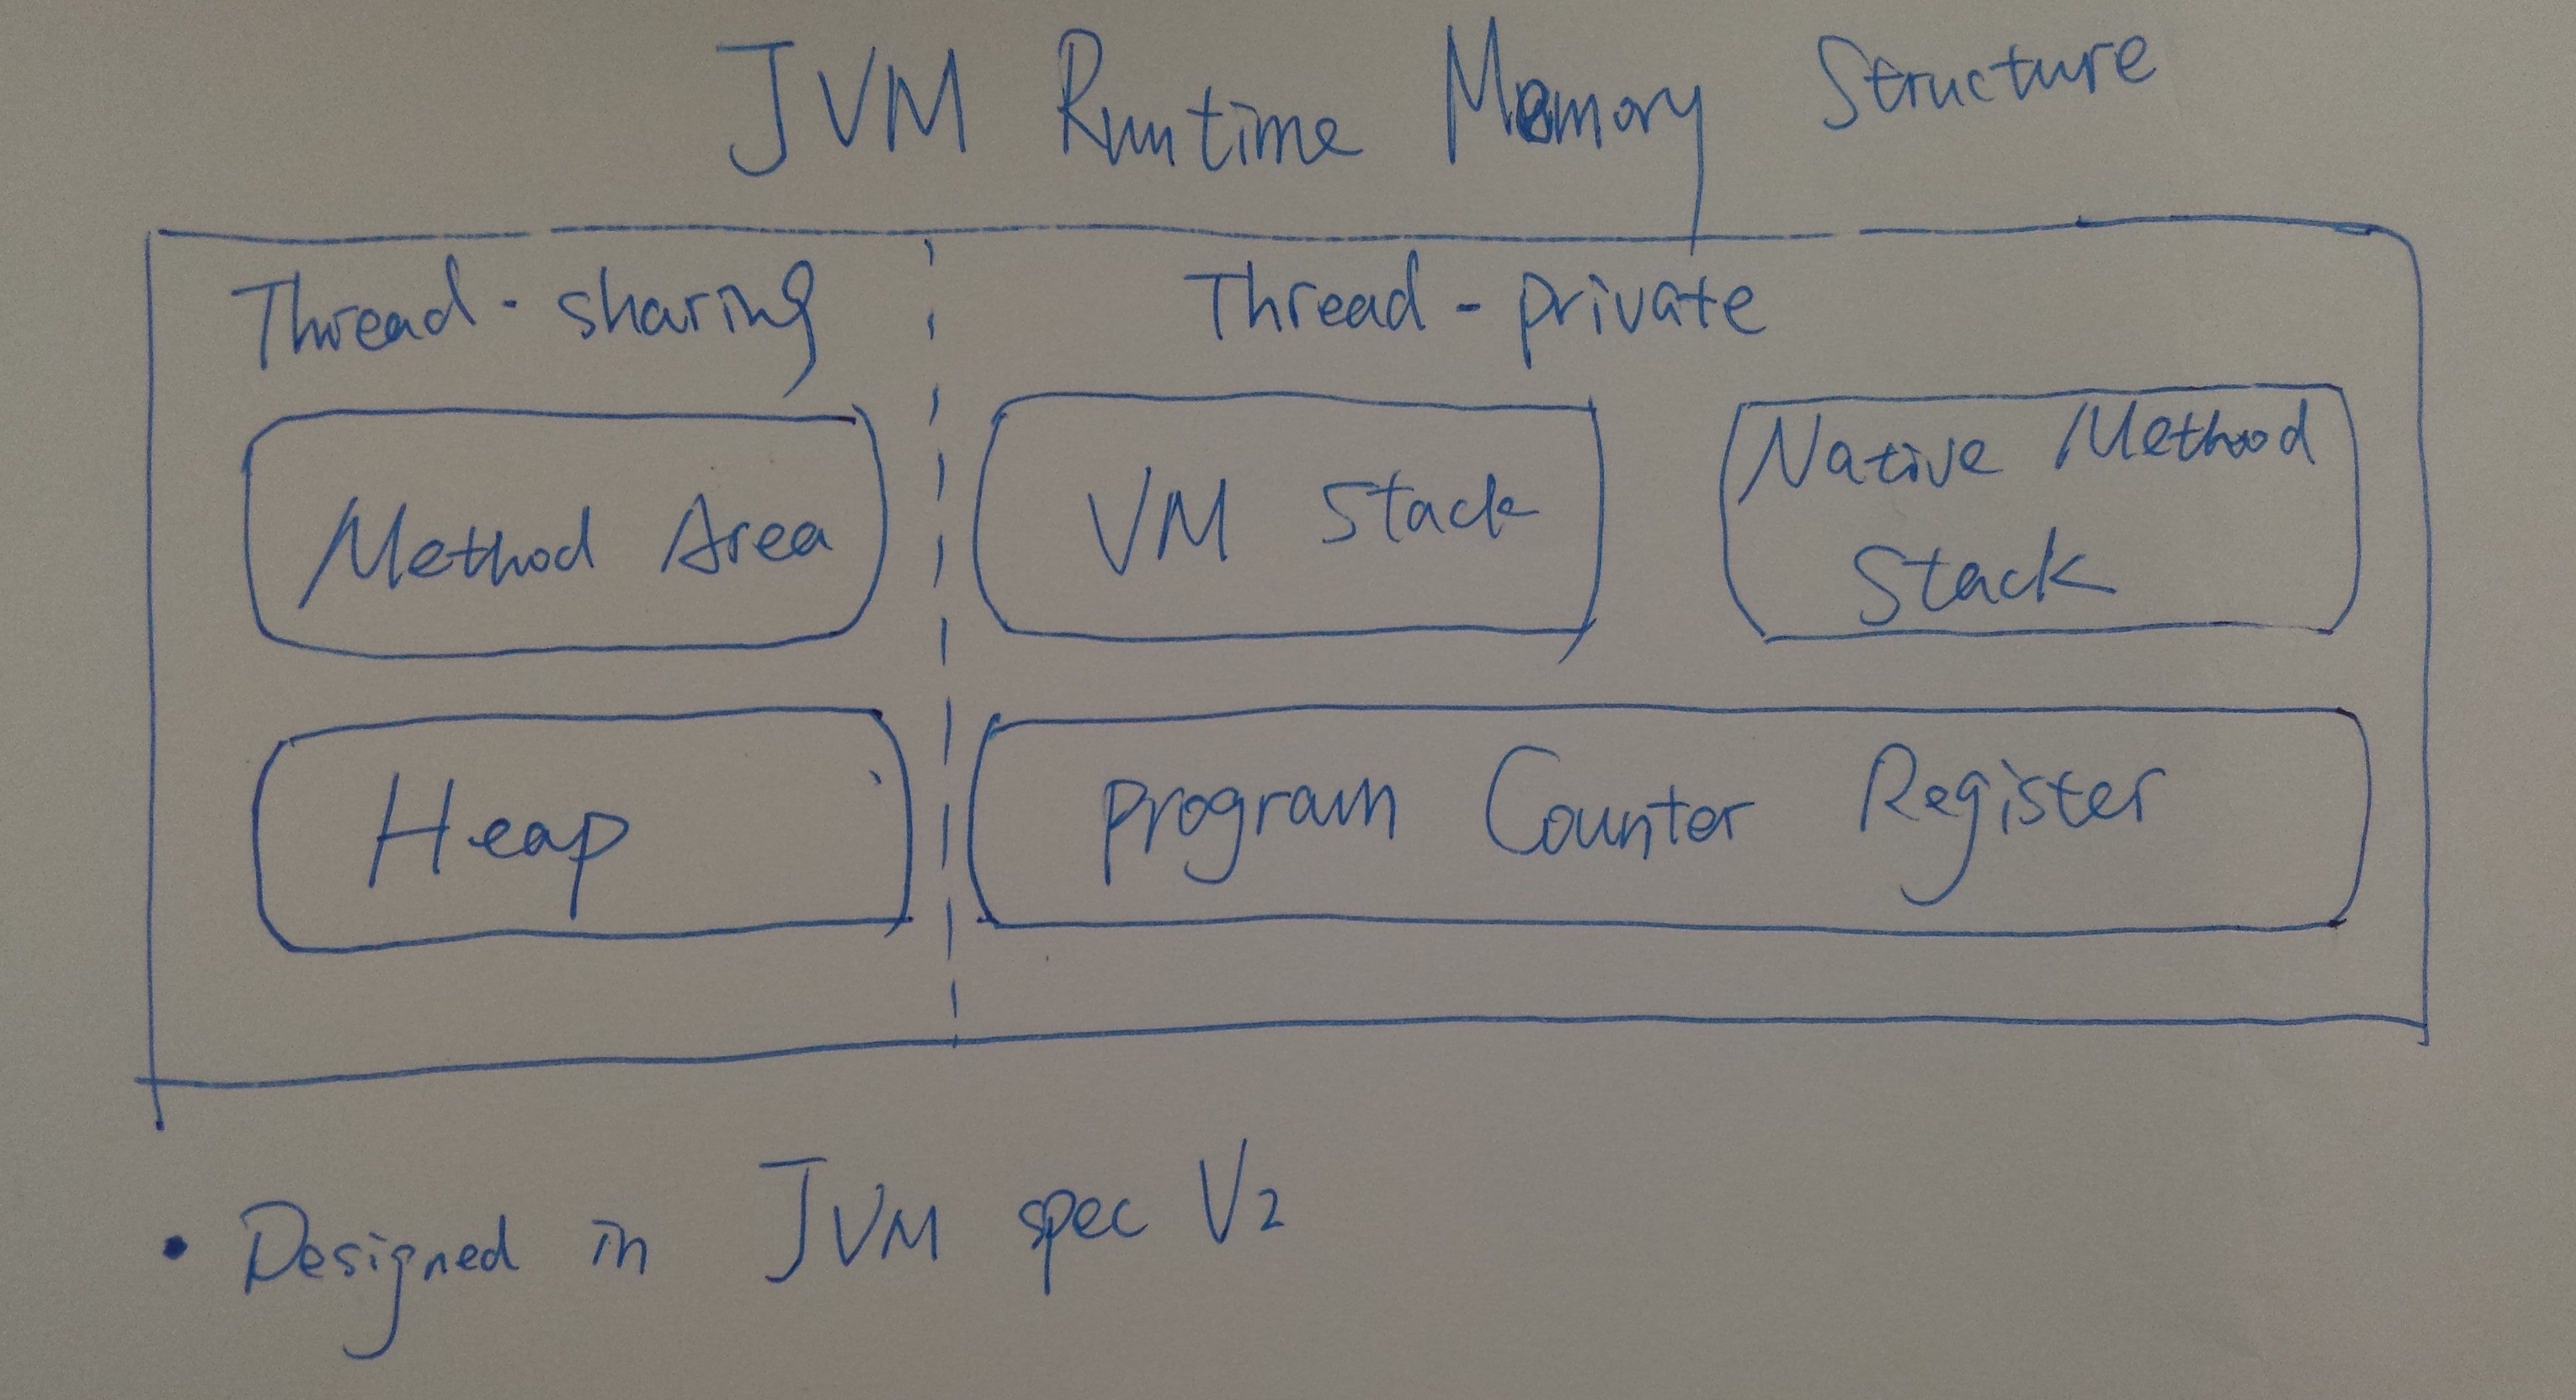 JVM Runtime Memory Structure
Thread-sharing
Thread-private
Method Area
VM Stack
Native Method
Stack
Heap
Program Counter Register
• Designed in JVM spec V2